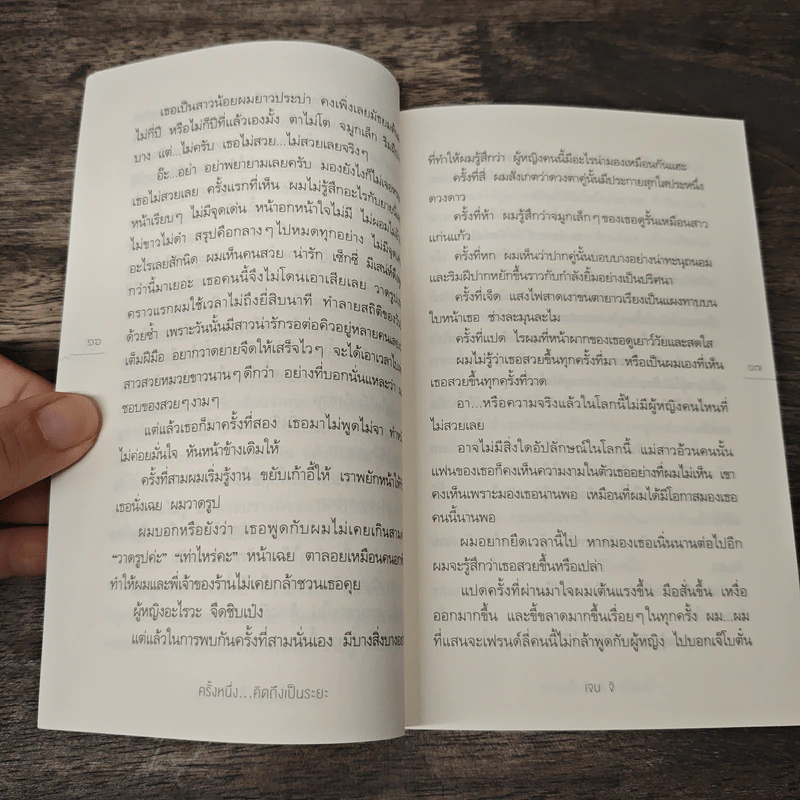 เธอเป็นสาวน้อยผมยาวประบ่า คงเพิ่งเลยมัธยมต้น
ไม่กี่ปี หรือไม่ก็ปีที่แล้วเองมั้ง ตาไม่โต จมูกเล็ก
บาง แต่...ไม่ครับ เธอไม่สวย...ไม่สวยเลยจริงๆ
อ๊ะ...อย่า อย่าพยายามเลยครับ มองยังไงก็ไม่
เธอไม่สวยเลย ครั้งแรกที่เห็น ผมไม่รู้สึกอะไรกับยาย
หน้าเรียบๆ ไม่มีจุดเด่น หน้าอกหน้าใจไม่มี ไม่ผอม
ไม่ขาวไม่ดำ สรุปคือกลางๆ ไปหมดทุกอย่าง ไม่มี
อะไรเลยสักนิด ผมเห็นคนสวย น่ารัก เซ็กซี่ มีเสน่ห์
กว่านี้มาเยอะ เธอคนนี้จึงไม่โดนเอาเสียเลย วาดรูป
คราวแรกผมใช้เวลาไม่ถึงยี่สิบนาที ทำลายสถิติของ
ด้วยซ้ำ เพราะวันนั้นมีสาวน่ารักรอต่อคิวอยู่หลายคน
เต็มฝีมือ อยากวาดยายจืดให้เสร็จไวๆ จะได้เอาเวลาไป
สาวสวยหมวยขาวนานๆ ดีกว่า อย่างที่บอกนั่นแหละว่า
ชอบของสวยๆ งามๆ
แต่แล้วเธอก็มาครั้งที่สอง เธอมาไม่พูดไม่จา
ไม่ค่อยมั่นใจ หันหน้าข้างเดิมให้
ครั้งที่สามผมเริ่มรู้งาน ขยับเก้าอี้ให้ เราพยักหน้าให้
เธอนั่งเฉย ผมวาดรูป
ผมบอกหรือยังว่า เธอพูดกับผมไม่เคยเกินสาม
“วาดรูปค่ะ” “เท่าไหร่คะ” หน้าเฉย ตาลอยเหมือนคน
ทำให้ผมและพี่เจ้าของร้านไม่เคยกล้าชวนเธอคุย
ผู้หญิงอะไรวะ จืดชิบเป๋ง
แต่แล้วในการพบกันครั้งที่สามนั่นเอง มีบางสิ่งบาง
๑๖
ครั้งหนึ่ง...คิดถึงเป็นระยะ
ที่ทำให้ผมรู้สึกว่า ผู้หญิงคนนี้มีอะไรน่ามองเหมือนกันแฮะ
ครั้งที่สี่ ผมสังเกตว่าดวงตาคู่นั้นมีประกายสุกใสประหนึ่ง
ดวงดาว
ครั้งที่ห้า ผมรู้สึกว่าจมูกเล็กๆ ของเธอดูรั้นเหมือนสาว
แก่นแก้ว
ครั้งที่หก ผมเห็นว่าปากคู่นั้นบอบบางอย่างน่าทะนุถนอม
และริมฝีปากหยักขึ้นราวกับกำลังยิ้มอย่างเป็นปริศนา
ครั้งที่เจ็ด แสงไฟสาดเงาขนตายาวเรียงเป็นแผงทาบบน
ใบหน้าเธอ ช่างละมุนละไม
ครั้งที่แปด ไรผมที่หน้าผากของเธอดูเยาว์วัยและสดใส
ผมไม่รู้ว่าเธอสวยขึ้นทุกครั้งที่มา หรือเป็นผมเองที่เห็น
เธอสวยขึ้นทุกครั้งที่วาด
อา...หรือความจริงแล้วในโลกนี้ไม่มีผู้หญิงคนไหนที่
ไม่สวยเลย
อาจไม่มีสิ่งใดอัปลักษณ์ในโลกนี้ แม่สาวอ้วนคนนั้น
แฟนของเธอก็คงเห็นความงามในตัวเธออย่างที่ผมไม่เห็น เขา
คงเห็นเพราะมองเธอนานพอ เหมือนที่ผมได้มีโอกาสมองเธอ
คนนี้นานพอ
ผมอยากยืดเวลานี้ไป หากมองเธอเนิ่นนานต่อไปอีก
ผมจะรู้สึกว่าเธอสวยขึ้นหรือเปล่า
แปดครั้งที่ผ่านมาใจผมเต้นแรงขึ้น มือสั่นขึ้น เหงื่อ
ออกมากขึ้น และขี้ขลาดมากขึ้นเรื่อยๆ ในทุกครั้ง ผม...ผม
ที่แสนจะเฟรนด์ลี่คนนี้ไม่กล้าพูดกับผู้หญิง ไปบอกเจ๊โบตั๋น
๑๗
เจน จิ